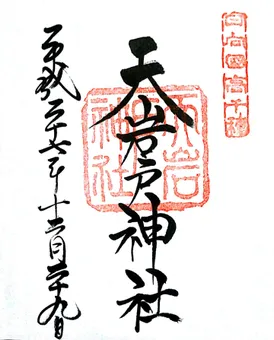 日向國高千穗
天岩戸神社
天岩戸神社
平成二十六年十二月二十九日